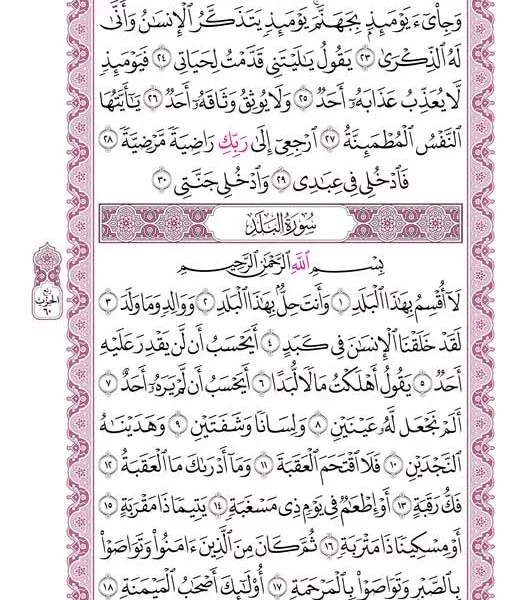 وَجِاْىٓءَ يَوۡمَئِذِۭ بِجَهَنَّمَۚ يَوۡمَئِذٖ يَتَذَكَّرُ ٱلۡإِنسَٰنُ وَأَنَّىٰ
لَهُ ٱلذِّكۡرَىٰ ٢٣ يَقُولُ يَٰلَيۡتَنِي قَدَّمۡتُ لِحَيَاتِي ٢٤ فَيَوۡمَئِذٖ
لَّا يُعَذِّبُ عَذَابَهُۥٓ أَحَدٞ ٢٥ وَلَا يُوثِقُ وَثَاقَهُۥٓ أَحَدٞ ٢٦ يَٰٓأَيَّتُهَا
ٱلنَّفۡسُ ٱلۡمُطۡمَئِنَّةُ ٢٧ ٱرۡجِعِيٓ إِلَىٰ رَبِّكِ رَاضِيَةٗ مَّرۡضِيَّةٗ ٢٨
فَٱدۡخُلِي فِي عِبَٰدِي ٢٩ وَٱدۡخُلِي جَنَّتِي ٣٠
سُورَةُ البَلَدِ
بِسۡمِ ٱللَّهِ ٱلرَّحۡمَٰنِ ٱلرَّحِيمِ
لَآ أُقۡسِمُ بِهَٰذَا ٱلۡبَلَدِ ١ وَأَنتَ حِلُّۢ بِهَٰذَا ٱلۡبَلَدِ ٢ وَوَالِدٖ وَمَا وَلَدَ ٣
لَقَدۡ خَلَقۡنَا ٱلۡإِنسَٰنَ فِي كَبَدٍ ٤ أَيَحۡسَبُ أَن لَّن يَقۡدِرَ عَلَيۡهِ
أَحَدٞ ٥ يَقُولُ أَهۡلَكۡتُ مَالٗا لُّبَدًا ٦ أَيَحۡسَبُ أَن لَّمۡ يَرَهُۥٓ أَحَدٌ ٧
أَلَمۡ نَجۡعَل لَّهُۥ عَيۡنَيۡنِ ٨ وَلِسَانٗا وَشَفَتَيۡنِ ٩ وَهَدَيۡنَٰهُ
ٱلنَّجۡدَيۡنِ ١٠ فَلَا ٱقۡتَحَمَ ٱلۡعَقَبَةَ ١١ وَمَآ أَدۡرَىٰكَ مَا ٱلۡعَقَبَةُ ١٢
فَكُّ رَقَبَةٍ ١٣ أَوۡ إِطۡعَٰمٞ فِي يَوۡمٖ ذِي مَسۡغَبَةٖ ١٤ يَتِيمٗا ذَا مَقۡرَبَةٍ ١٥
أَوۡ مِسۡكِينٗا ذَا مَتۡرَبَةٖ ١٦ ثُمَّ كَانَ مِنَ ٱلَّذِينَ ءَامَنُواْ وَتَوَاصَوۡاْ
بِٱلصَّبۡرِ وَتَوَاصَوۡاْ بِٱلۡمَرۡحَمَةِ ١٧ أُوْلَٰٓئِكَ أَصۡحَٰبُ ٱلۡمَيۡمَنَةِ ١٨
ربع
الحزب
٦٠